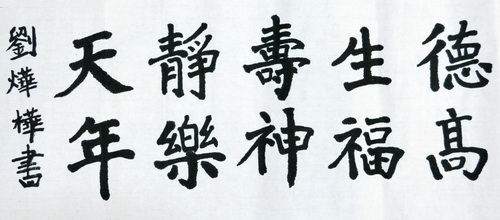 德高
生福
壽神
靜樂
天年
劉燁樺書